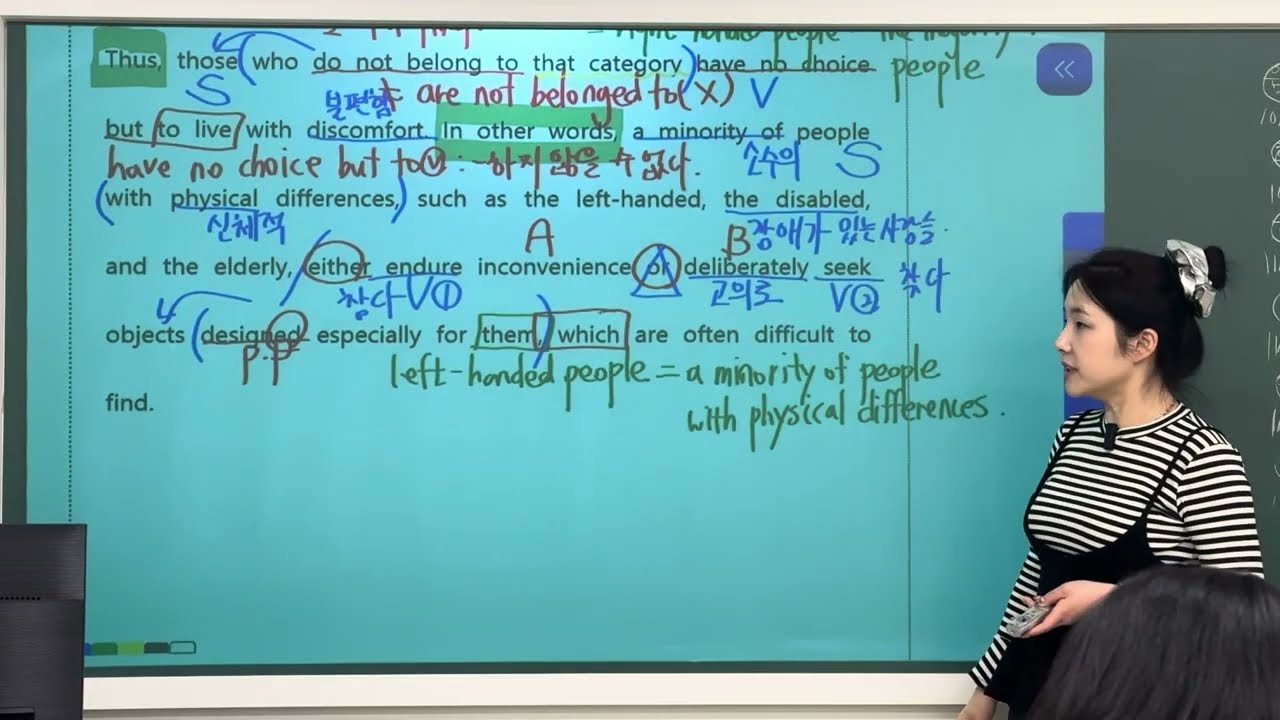 = right handed people the majority.
Thus, those who do not belong to that category have no choice people
S
불편함 ≠ are not belonged to(X) V
but to live with discomfort. In other words, a minority of people
have no choice but to ⓥ : ~하지 않을 수 없다. 소수의 S
with physical differences, such as the left-handed, the disabled,
신체적 A B 장애가 있는 사람들.
and the elderly, either endure inconvenience or deliberately seek
참다 V① 고의로 V② 찾다
objects designed especially for them, which are often difficult to
p.p left-handed people = a minority of people
find.
with physical differences.